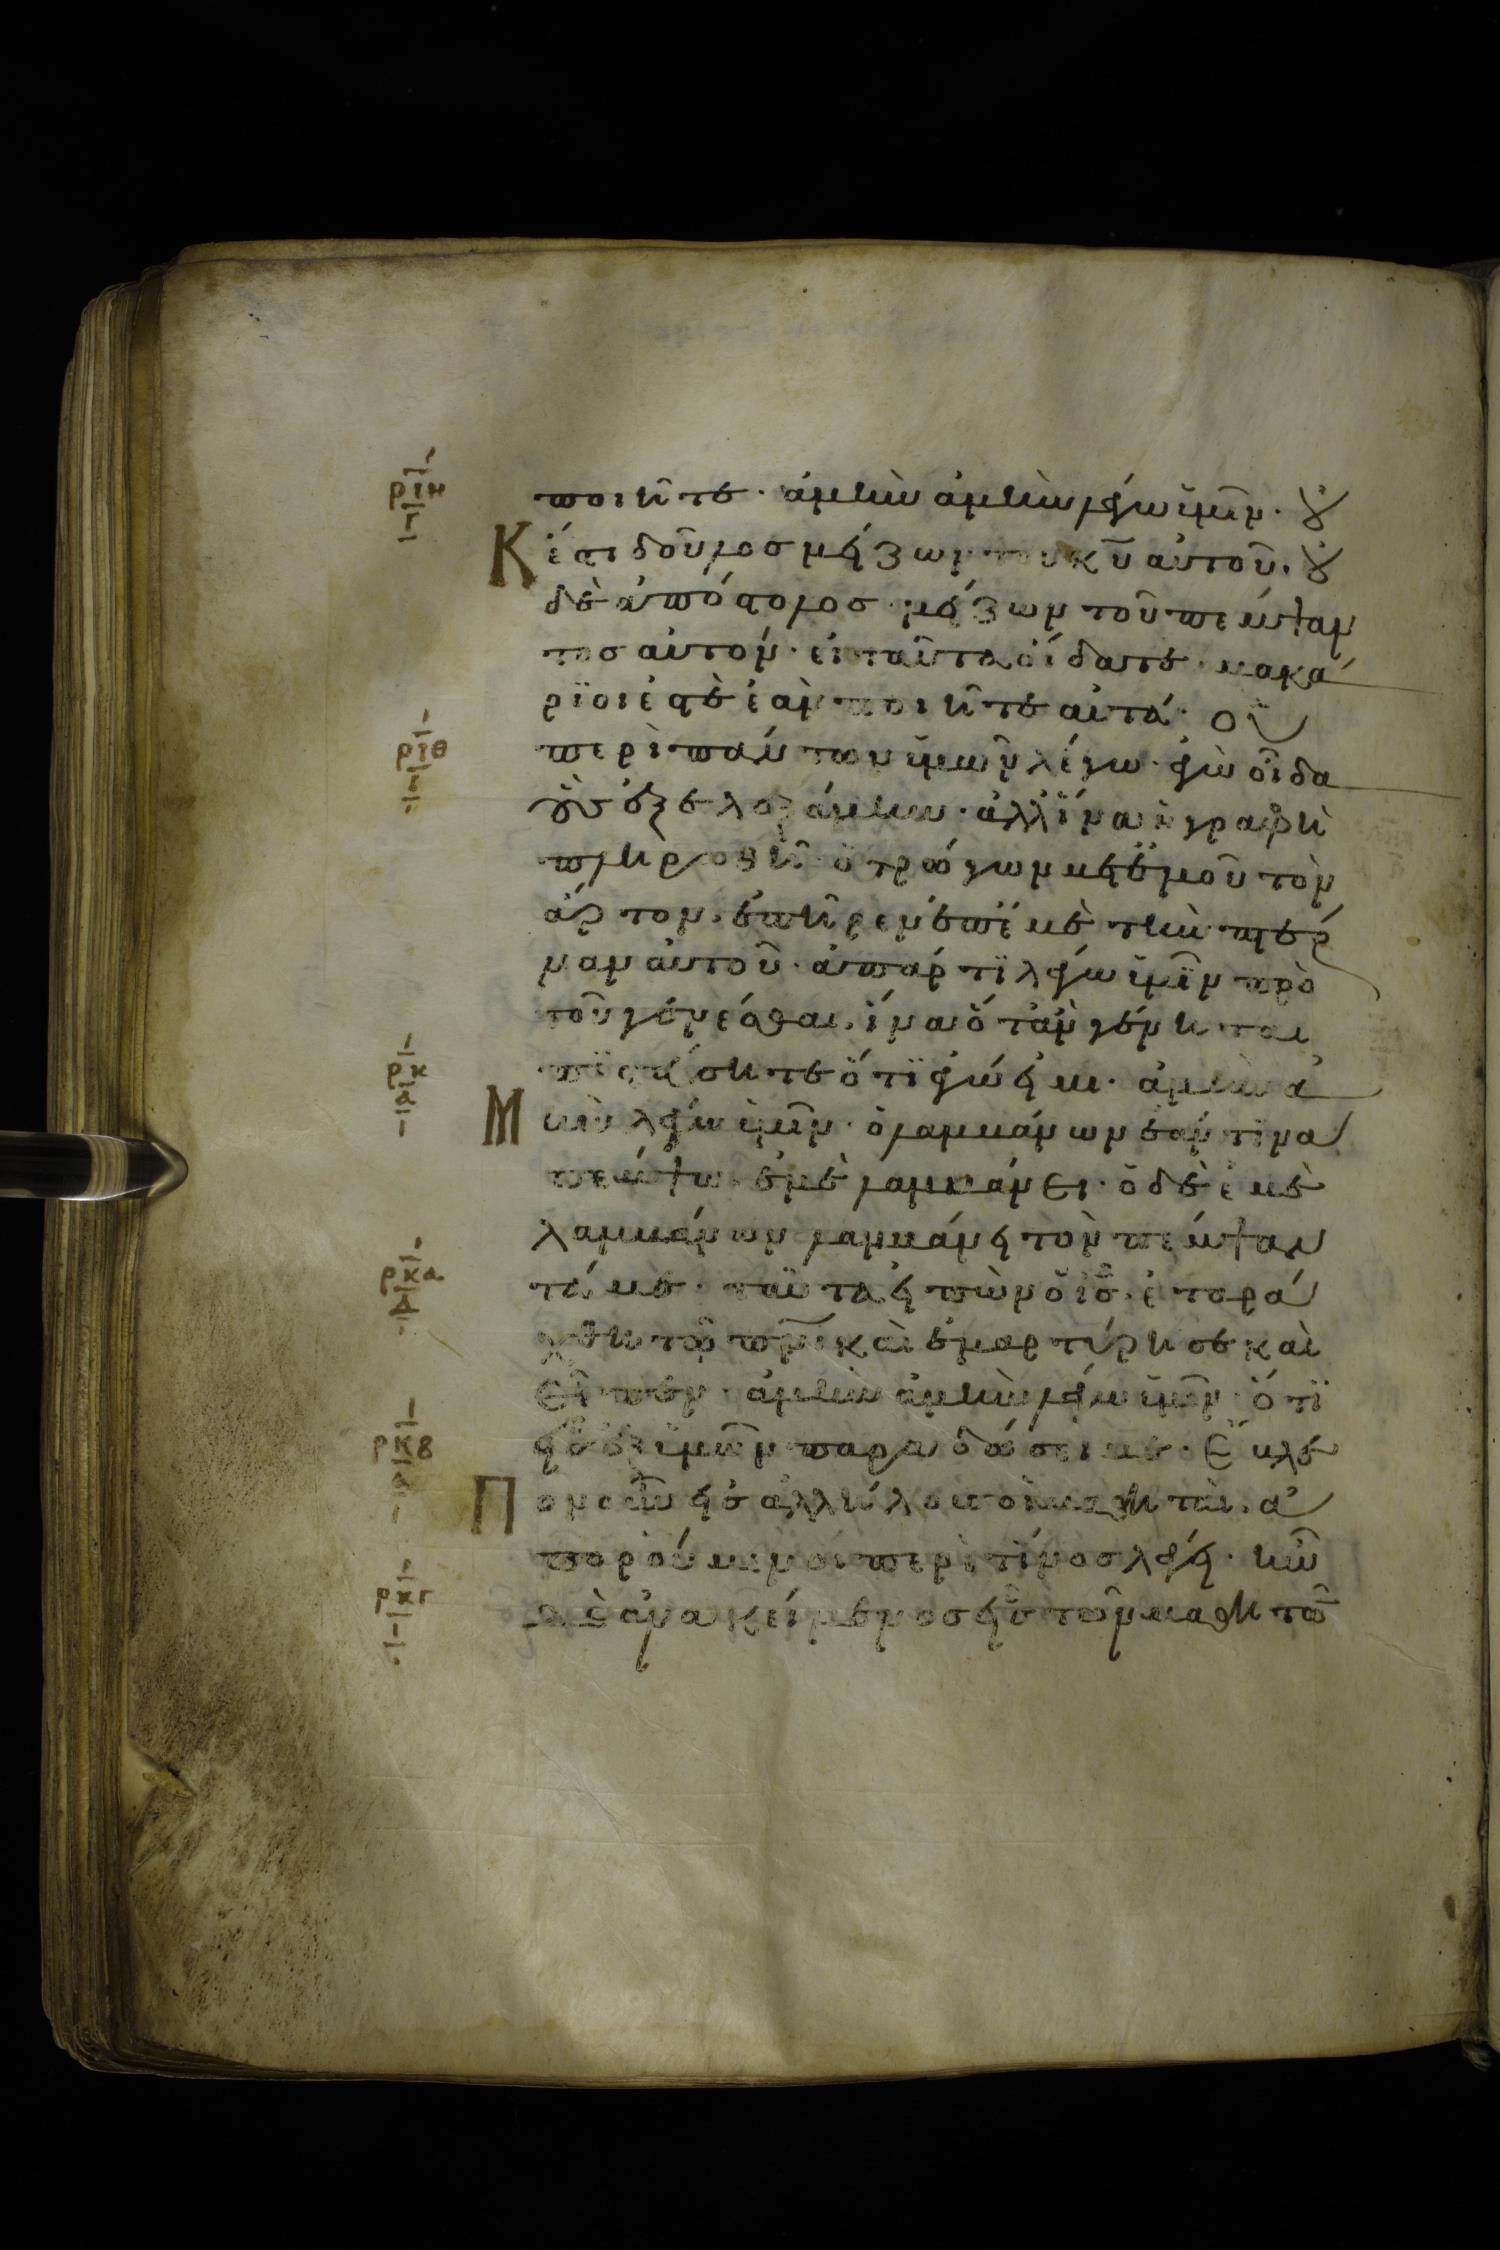 ριη
γ
ποιῆτε· ἀμὴν ἀμὴν λέγω ὑμῖν· οὐ
Κ ἔστι δοῦλος μείζων του κυ αὐτοῦ· οὐ
δὲ ἀπόστολος μείζων τοῦ πέμψαν
τος αὐτόν· εἰ ταῦτα οἴδατε· μακά
ριοι ἐστὲ ἐὰν ποιῆτε αὐτά· οὐ
ριθ
ι
περὶ πάντων ὑμῶν λέγω· ἐγὼ οἶδα
οὓς ἐξελεξάμην· ἀλλ' ἵνα ἡ γραφὴ
πληρωθῆ· ὁ τρώγων μετ' ἐμοῦ τὸν
ἄρτον· ἐπῆρεν ἐπ' ἐμὲ τὴν πτέρ
ναν αὐτοῦ· ἀπάρτι λέγω ὑμῖν πρὸ
τοῦ γενέσθαι· ἵνα ὅταν γένηται
ρκ
α
πιστεύσητε ὅτι ἐγώ εἰμι· ἀμὴν ἀ
Μ μὴν λέγω ὑμῖν· ὁ λαμβάνων ἐάν τινα
πέμψω· ἐμὲ λαμβάνει· ὁ δὲ ἐμὲ
λαμβάνων λαμβάνει τὸν πέμψαν
ρκα
δ
τά με· ταῦτα εἰπὼν ὁ ις· ἐταρά
χθη τῶ πνι καὶ ἐμαρτύρησε καὶ
εἶπεν· ἀμὴν ἀμὴν λέγω ὑμῖν· ὅτι
ρκβ
εἷς ἐξ ὑμῶν παραδώσει με· Ἔβλε
Π ον οὖν εἰς ἀλλήλους οἱ μαθηταὶ· ἀ
πορούμενοι περὶ τίνος λέγει· ἦν
ρκγ
ι
δὲ ἀνακείμενος εἷς τῶν μαθητῶ